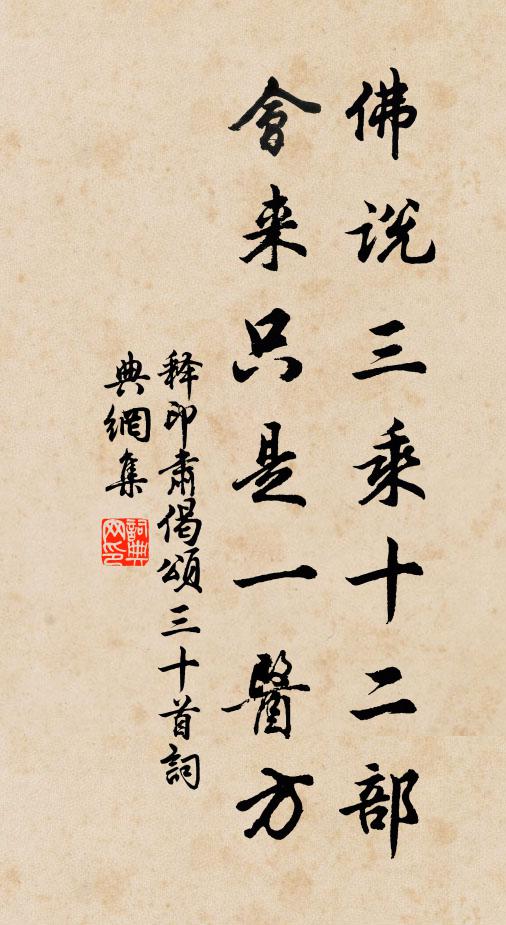 佛説三乘十二部
會来只是一醫方
释印肃偈頌三十首詞
典網集
詞典網印